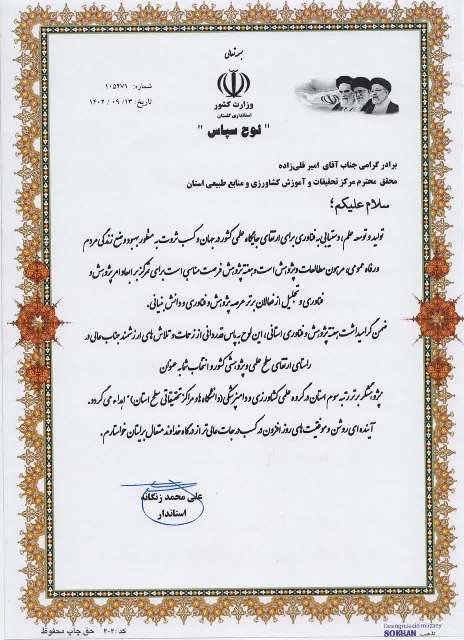 بسمه تعالی
وزارت کشور
استانداری گلستان
" لوح سپاس "
شماره: ۱۰۵۲۷۱
تاریخ: ۱۴۰۲/۰۹/۱۳
برادر گرامی جناب آقای امیر قلی‌زاده
محقق محترم مرکز تحقیقات و آموزش کشاورزی و منابع طبیعی استان
سلام علیکم؛
تولید و توسعه علم، دستیابی به فناوری برای ارتقای جایگاه علمی کشور در جهان و کسب ثروت به منظور بهبود وضع زندگی مردم
و رفاه عمومی، مرهون مطالعات و پژوهش است و هفته پژوهش فرصت مناسبی است برای تمرکز بر ابعاد امر پژوهش و
فناوری و تجلیل از فعالان برتر عرصه پژوهش و فناوری و دانش بنیانی.
ضمن گرامیداشت هفته پژوهش و فناوری استانی، این لوح به پاس قدردانی از زحمات و تلاش های ارزشمند جناب عالی در
راستای ارتقای سطح علمی و پژوهشی کشور و انتخاب شما به عنوان
پژوهشگر برتر رتبه سوم استان در گروه علمی کشاورزی و دامپزشکی (دانشگاه ها و مراکز تحقیقاتی سطح استان)" اهداء می گردد.
آینده ای روشن و موفقیت های روز افزون در کسب درجات عالی تر از درگاه خداوند متعال برایتان خواستارم.
علی محمد زنگانه
استاندار
کد: ۲۰۲۰ حق چاپ محفوظ
SOKHAN